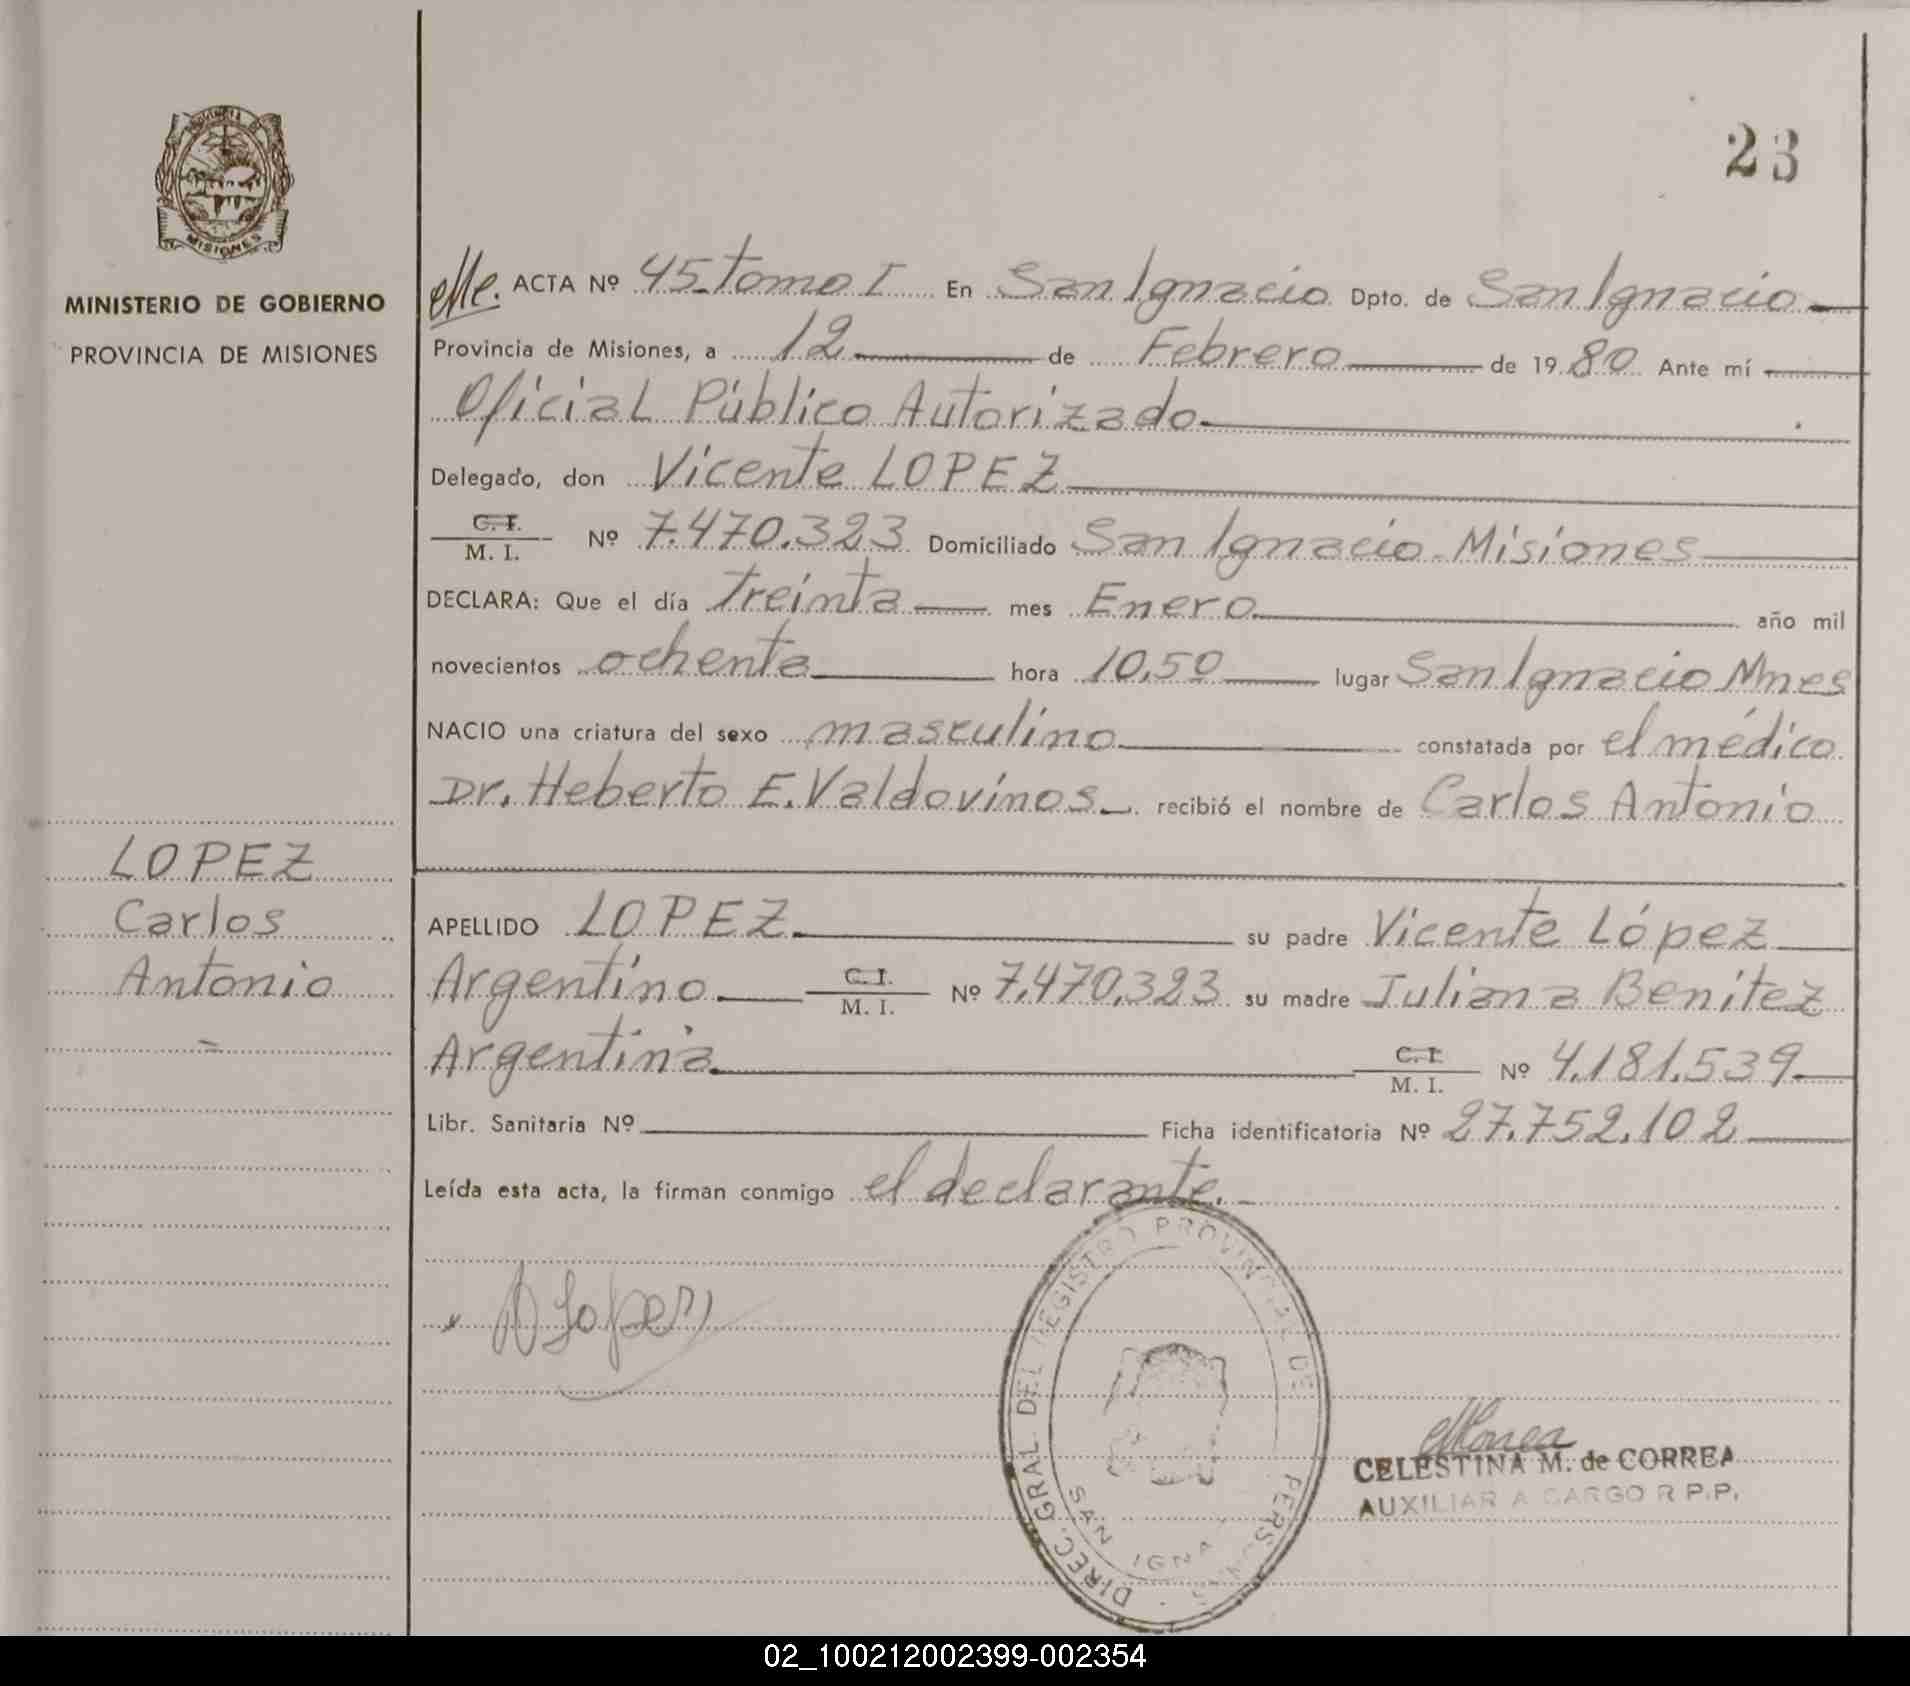 23
PROVINCIA DE
MISIONES
MINISTERIO DE GOBIERNO
PROVINCIA DE MISIONES
LOPEZ
Carlos
Antonio
ACTA Nº 45 Tomo I En San Ignacio Dpto. de San Ignacio
Provincia de Misiones, a 12 de Febrero de 1980 Ante mí
Oficial Público Autorizado
Delegado, don Vicente LOPEZ
C. I. / M. I. Nº 7.470.323 Domiciliado San Ignacio - Misiones
DECLARA: Que el día Treinta mes Enero año mil
novecientos ochenta hora 10,50 lugar San Ignacio Mnes
NACIO una criatura del sexo masculino constatada por el médico
Dr. Heberto E. Valdovinos recibió el nombre de Carlos Antonio
APELLIDO LOPEZ su padre Vicente López
Argentino C. I. / M. I. Nº 7.470.323 su madre Juliana Benitez
Argentina C. I. / M. I. Nº 4.181.539
Libr. Sanitaria Nº Ficha identificatoria Nº 27.752.102
Leída esta acta, la firman conmigo el declarante.
Lopez
DIREC. GRAL. DEL REGISTRO PROVINCIAL DE
PERSONAS
SAN IGNA
CELESTINA M. de CORREA
AUXILIAR A CARGO R P.P.
02_100212002399-002354